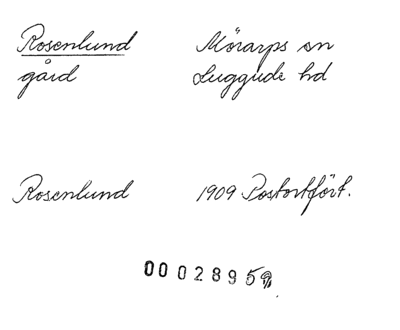 Rosenlund Mörarps sn
gård Luggude hd
Rosenlund 1909 Postortsfört.